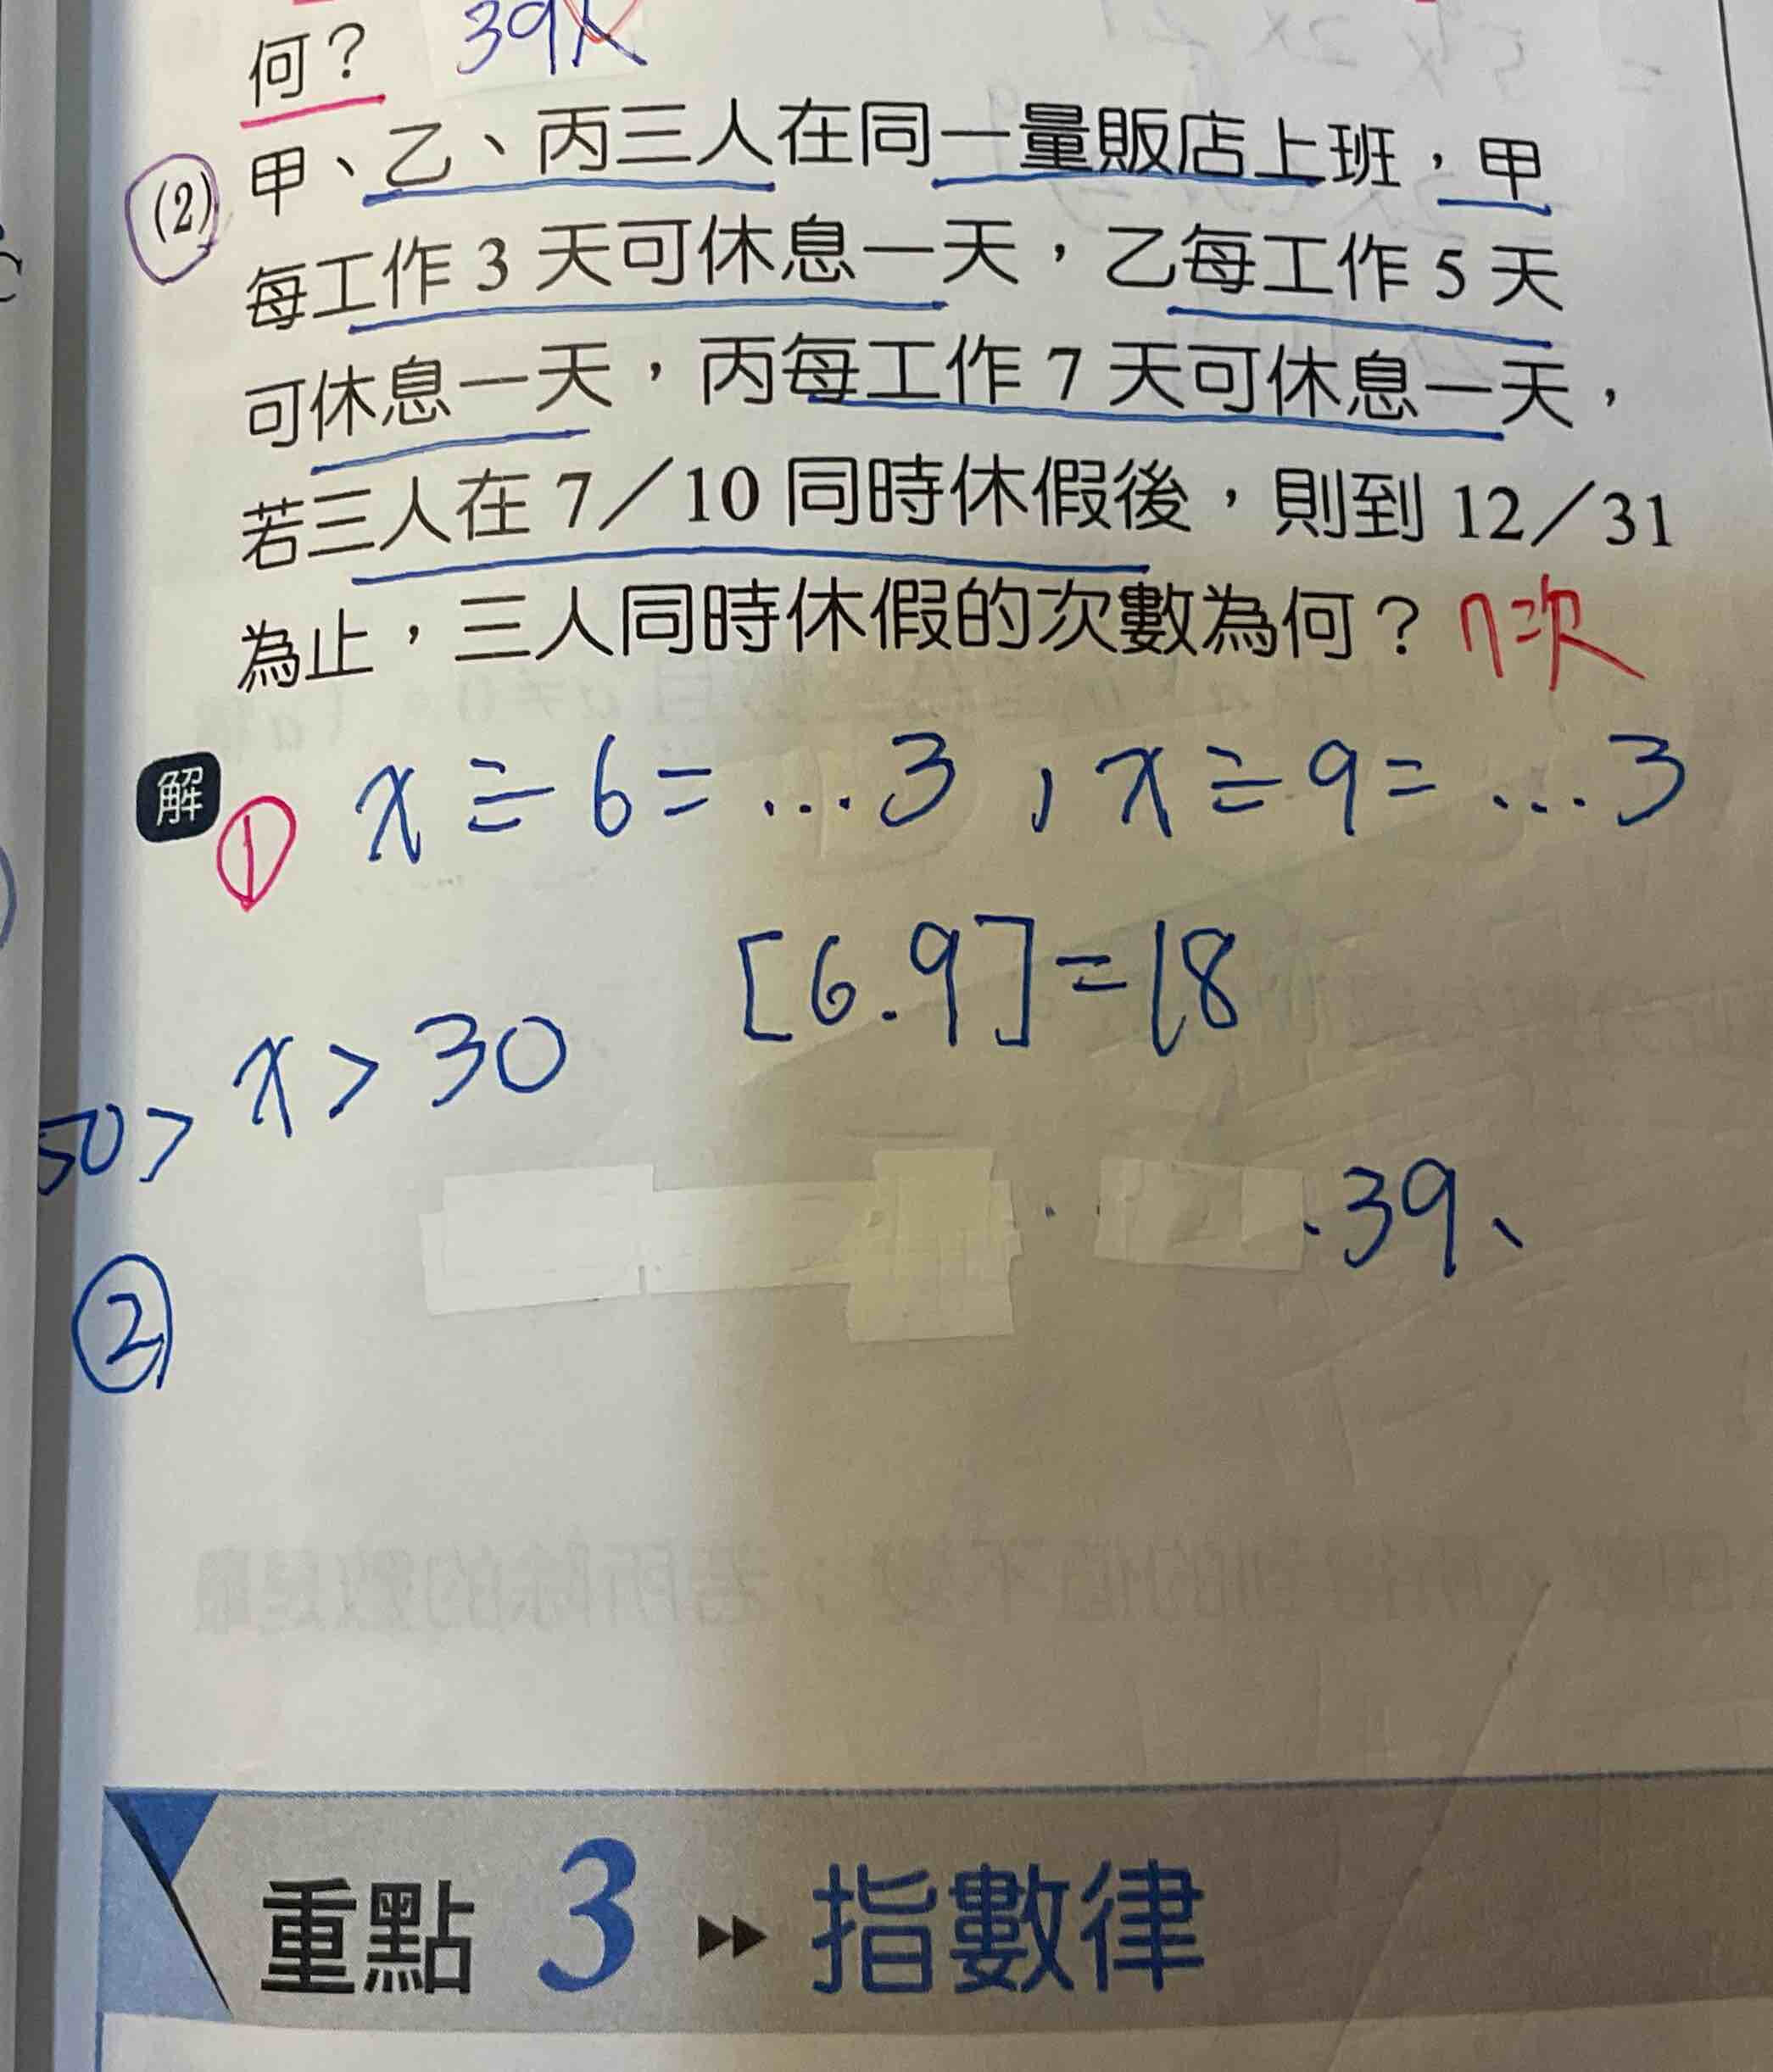 何？ 39人
(2) 甲、乙、丙三人在同一量販店上班，甲
每工作 3 天可休息一天，乙每工作 5 天
可休息一天，丙每工作 7 天可休息一天，
若三人在 7／10 同時休假後，則到 12／31
為止，三人同時休假的次數為何？ 7次
解 ① x÷6=...3 , x÷9=...3
[6.9]=18
50> x>30
.39、
②
重點 3 ▸▸ 指數律